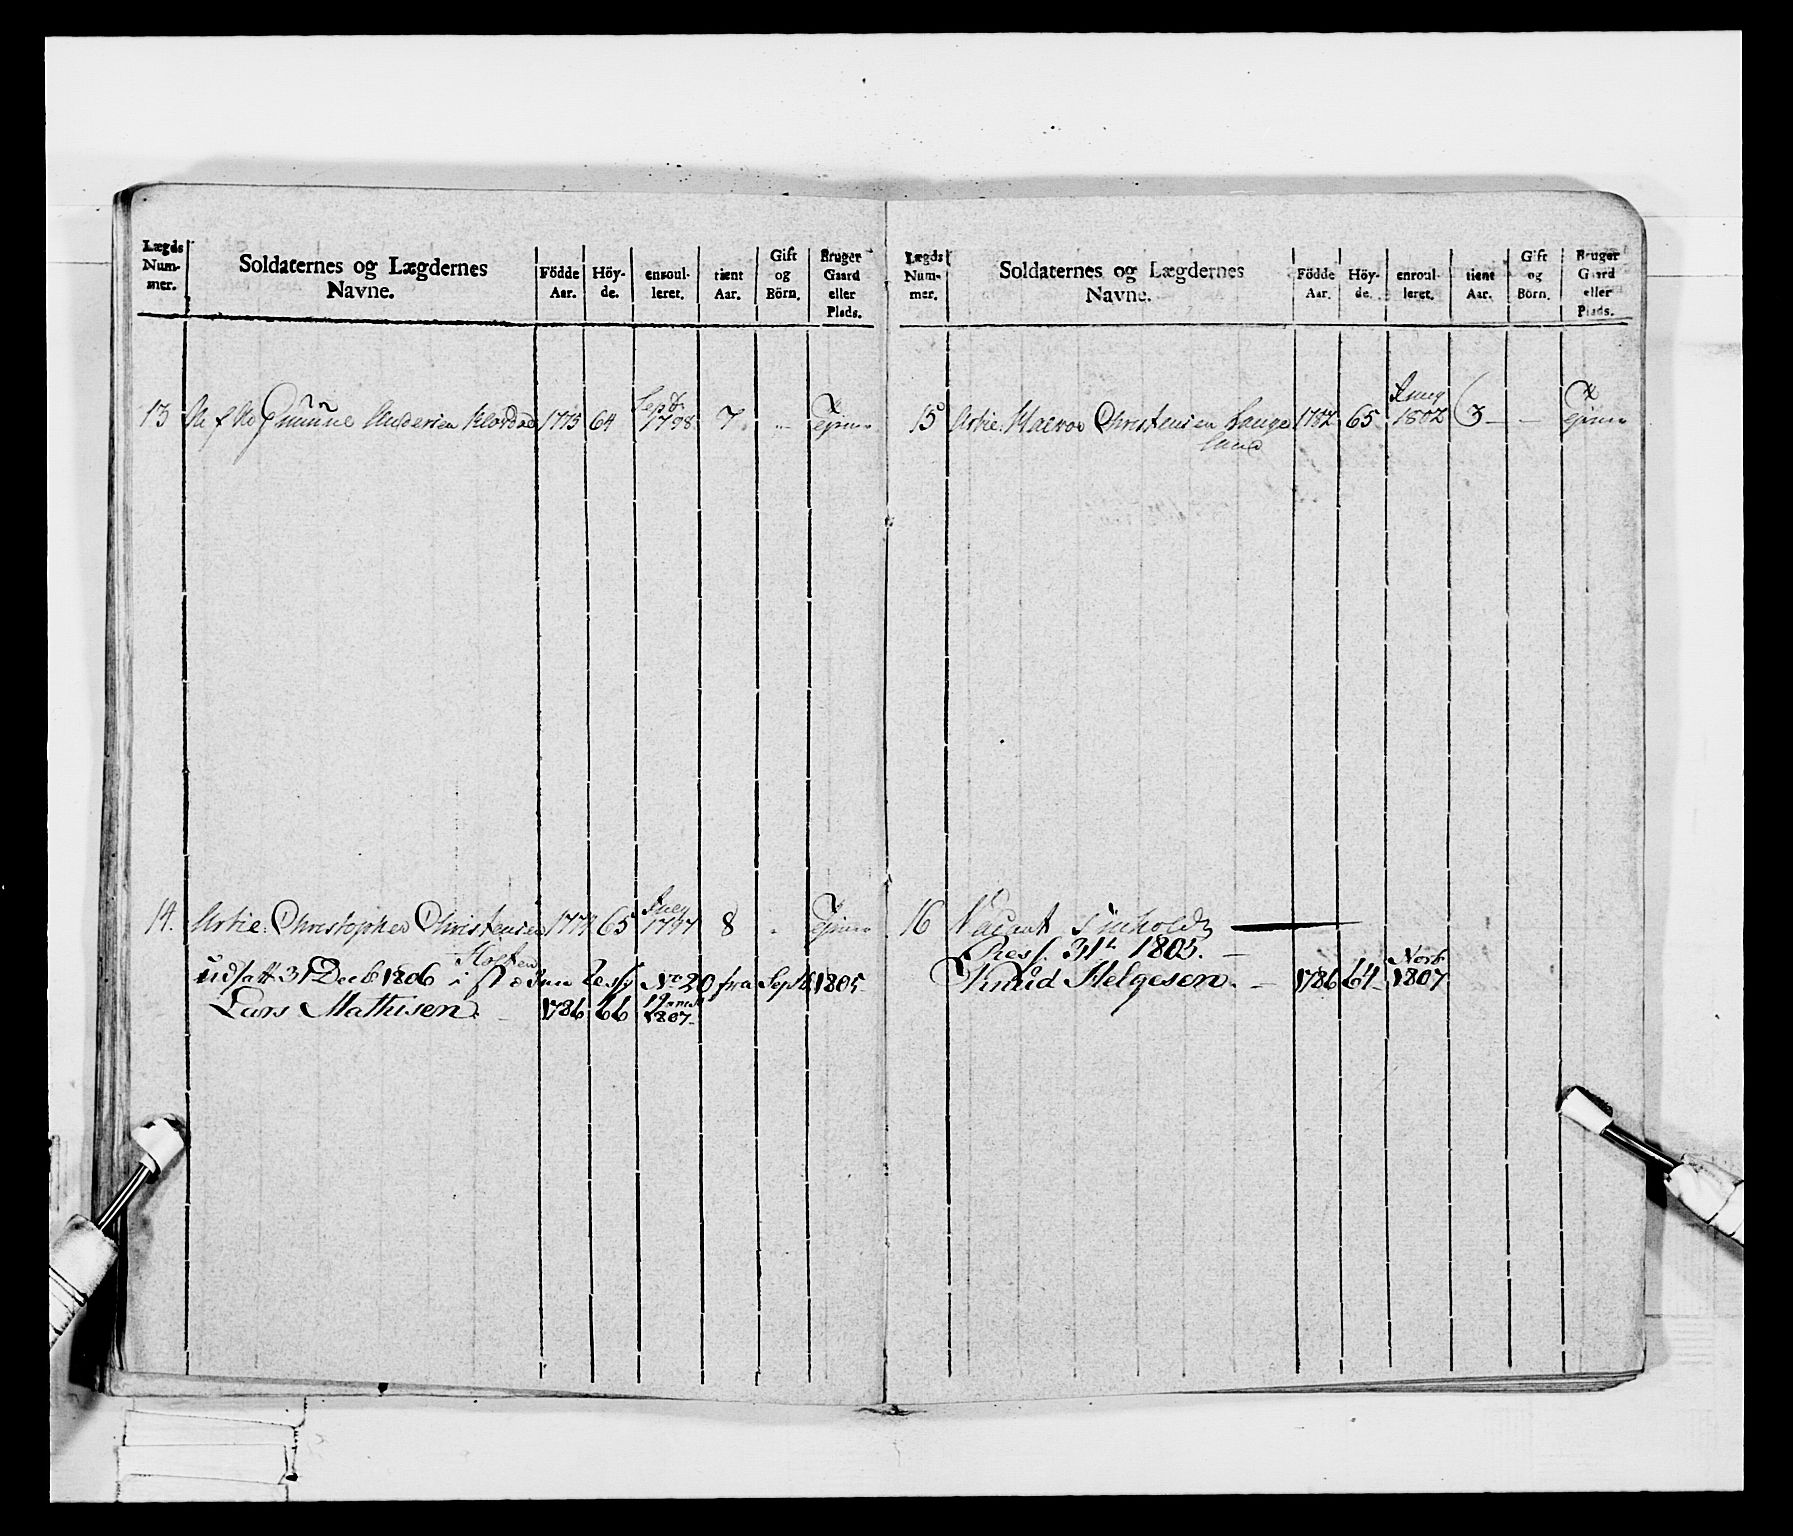 Lægds Num- mer.
Soldaternes og Lægdernes Navne.
Födde Aar.
Höy- de.
enroul- leret.
tient Aar.
Gift og Börn.
Bruger Gaard eller Plads.
13 Gunnne Andersen 1775 64 Sept 1798 7. Ejener
14. Artie: Christopher Christensen 1774 65 1797 8 Ejener
Udsatt 31 Decb 1806 i No 20 fra Sept 1805
Lars Mathisen. 1786 66 1807
Lægds Num- mer.
Soldaternes og Lægdernes Navne.
Födde Aar.
Höy- de.
enroul- leret.
tient Aar.
Gift og Börn.
Bruger Gaard eller Plads.
15 Artie: Halvor Christensen Lange 1782 65 1802 3 — — Ejener
land
16 Vacant
Ress. 31 1805.
Knud Helgesen. 1786 64 Novb 1807